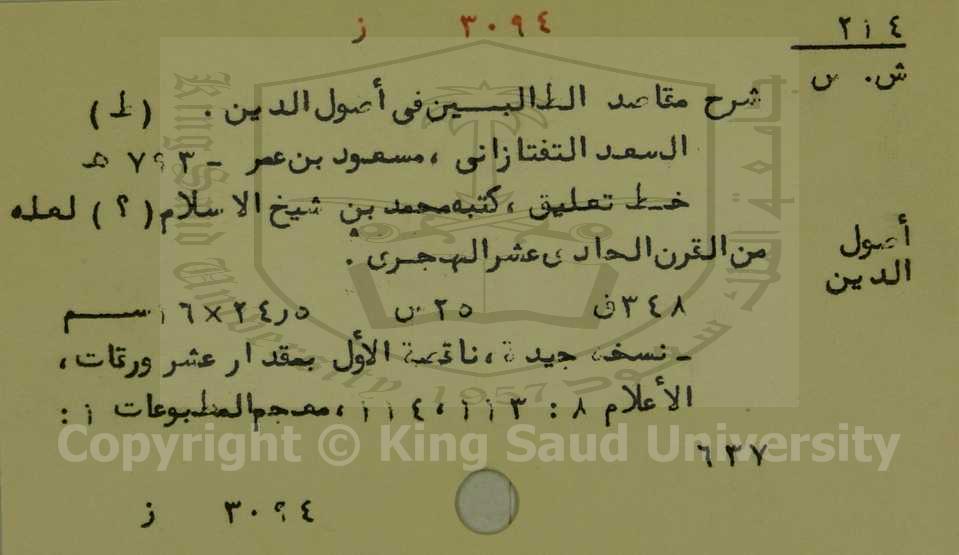 ٣٠٩٤ ز
٢١٤
ش. س
شرح مقاصد الطالبين فى أصول الدين . (ط)
السعد التفتازانى ، مسعود بن عمر - ٧٩٣ هـ
خط تعليق ، كتبه محمد بن شيخ الاسلام (؟) لعله
من القرن الحادى عشر الهجرى .
أصول
الدين
٣٤٨ ق ٢٥ س ٢٤٫٥×١٦ سم
- نسخة جيدة ، ناقصة الأول بمقدار عشر ورقات ،
الأعلام ٨ : ١١٣ ، ١١٤ ، معجم المطبوعات ١ :
٦٣٧
٣٠٩٤ ز
Copyright © King Saud University
King Saud University
1957